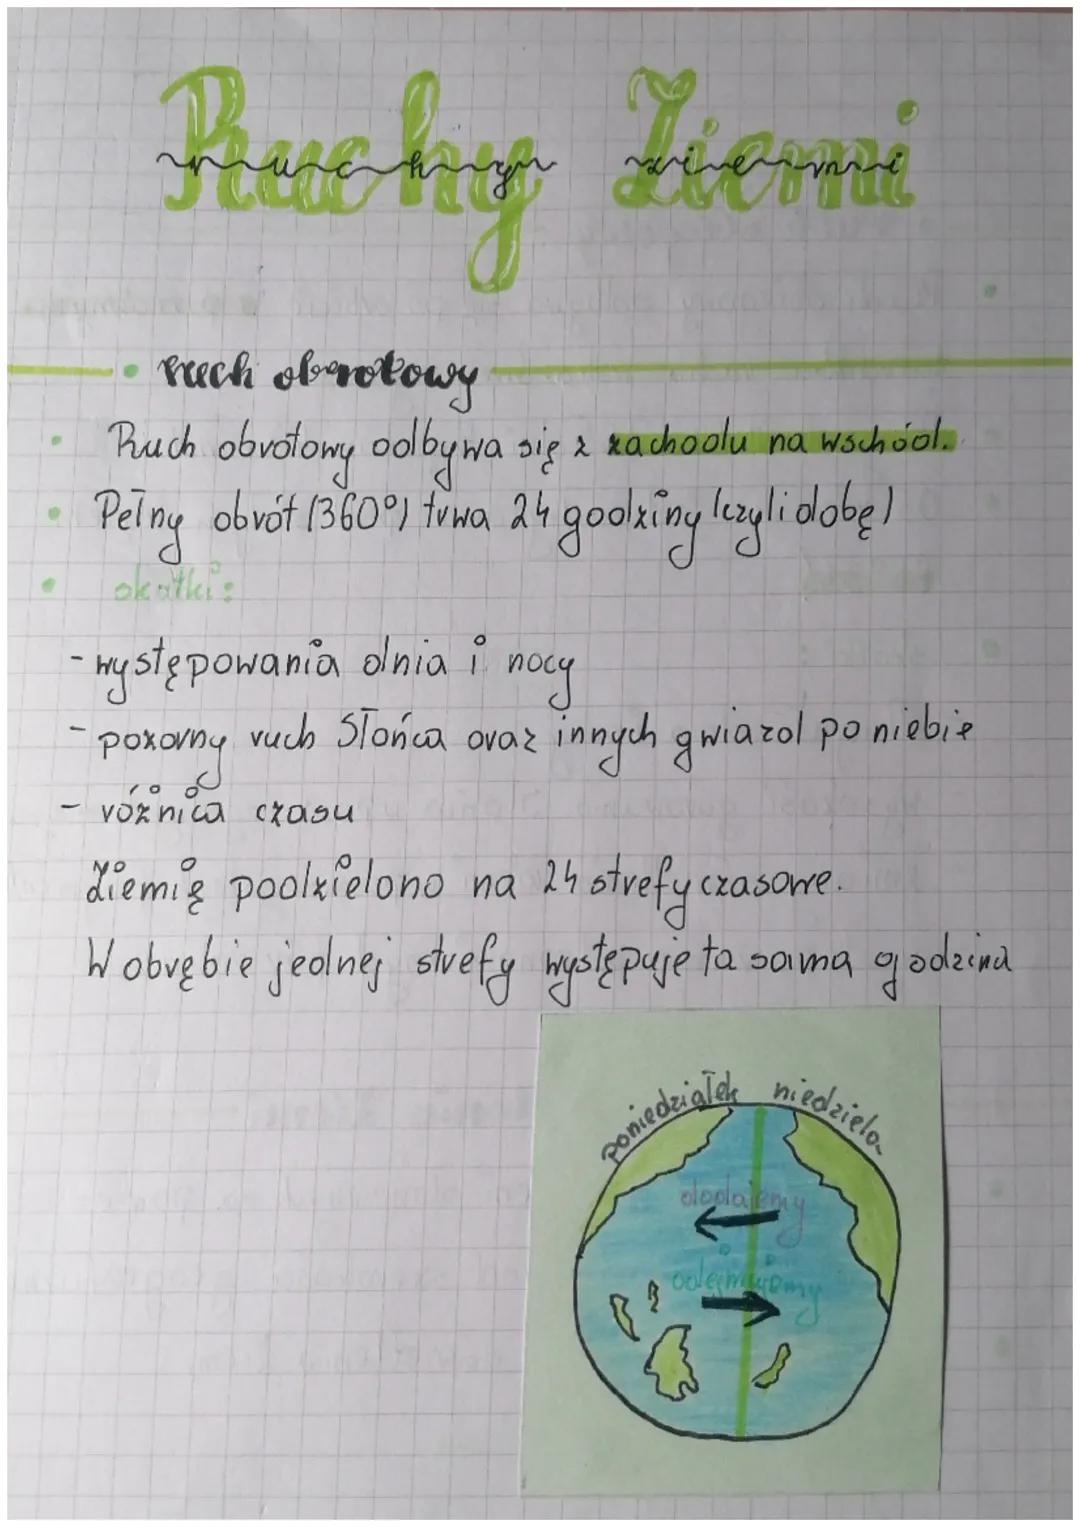 Ruchy Ziemi
ruchy ziemi
• ruch obrotowy
• Ruch obrotowy odbywa się z zachodu na wschód.
• Pełny obrót (360°) trwa 24 godziny (czyli dobę)
• skutki:
- występowania dnia i nocy
- pozorny ruch Słońca oraz innych gwiazd po niebie
- różnica czasu
Ziemię podzielono na 24 strefy czasowe.
W obrębie jednej strefy występuje ta sama godzina
poniedziałek niedziela
dodajemy
odejmujemy